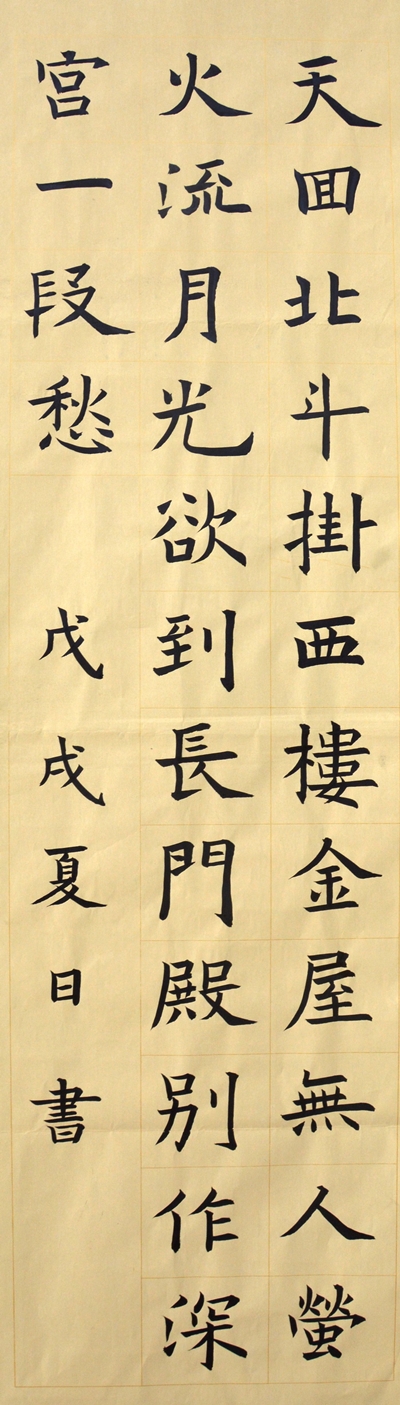 天囬北斗掛西樓金屋無人螢
火流月光欲到長門殿别作深
宮一段愁
戊戌夏日書